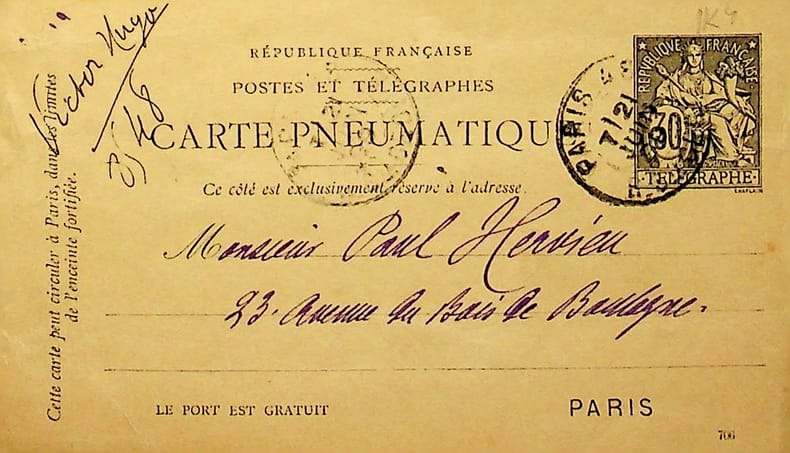 RÉPUBLIQUE FRANÇAISE
POSTES ET TÉLÉGRAPHES
CARTE PNEUMATIQU
Ce côté est exclusivement réservé à l'adresse.
Monsieur Paul Hervieu
23. Avenue du Bois de Boulogne.
LE PORT EST GRATUIT
PARIS
706
Cette carte peut circuler à Paris, dans les limites
de l'enceinte fortifiée.
Victor Hugo
48
RÉPUBLIQUE FRANÇAISE
30
TÉLÉGRAPHE
CHAPLAIN
PARIS
7 21